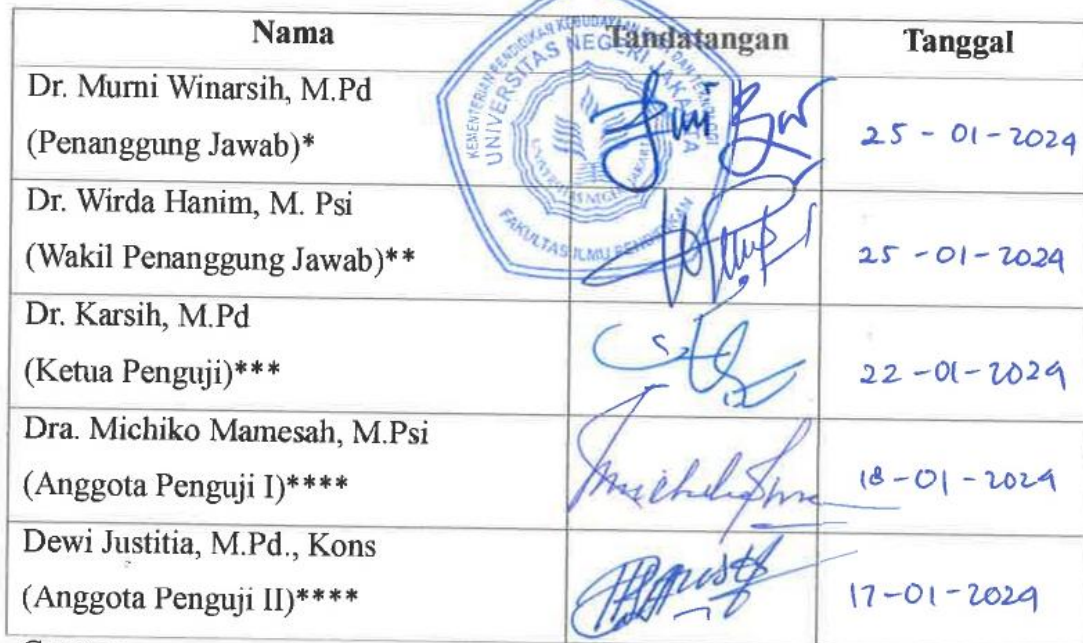 Nama Tandatangan Tanggal
Dr. Murni Winarsih, M.Pd
(Penanggung Jawab)*
25 - 01 - 2024
Dr. Wirda Hanim, M. Psi
(Wakil Penanggung Jawab)**
25 - 01 - 2024
Dr. Karsih, M.Pd
(Ketua Penguji)***
22 - 01 - 2024
Dra. Michiko Mamesah, M.Psi
(Anggota Penguji I)****
18 - 01 - 2024
Dewi Justitia, M.Pd., Kons
(Anggota Penguji II)****
17 - 01 - 2024
KEMENTERIAN PENDIDIKAN KEBUDAYAAN DAN
UNIVERSITAS NEGERI JAKARTA
UNIVERSITAS NEGERI JAKARTA
FAKULTAS ILMU PENDIDIKAN